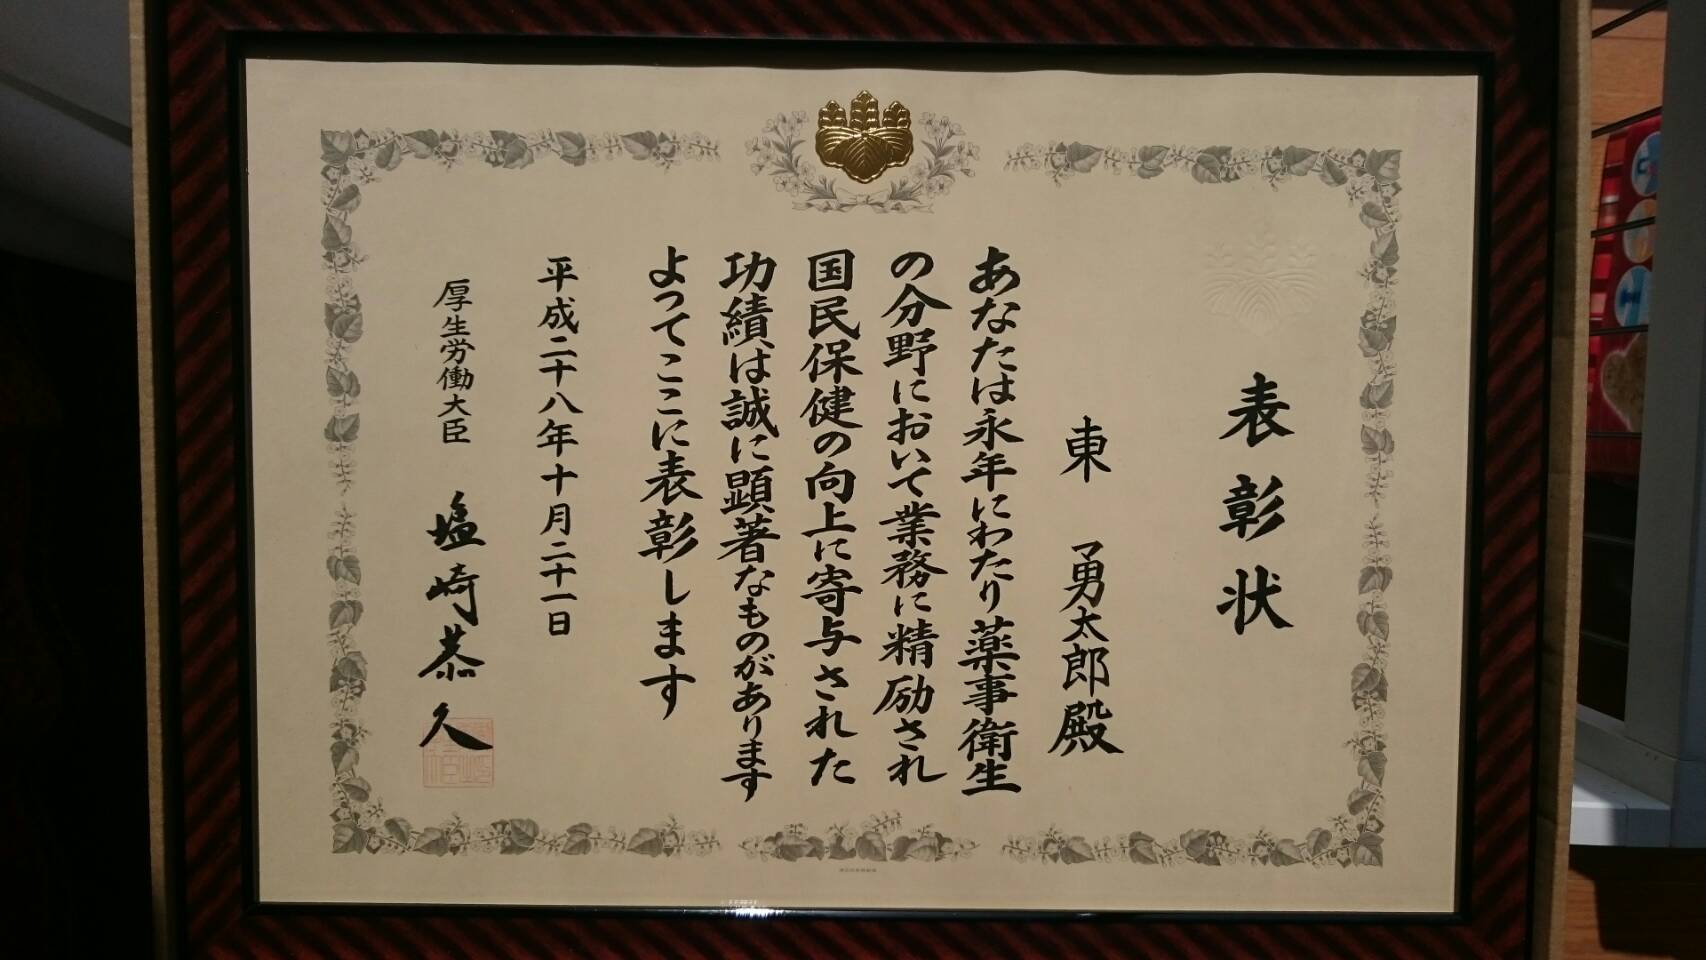 表彰状
東 勇太郎殿
あなたは永年にわたり薬事衛生
の分野において業務に精励され
国民保健の向上に寄与された
功績は誠に顕著なものがあります
よってここに表彰します
平成二十八年十月二十一日
厚生労働大臣 塩崎恭久